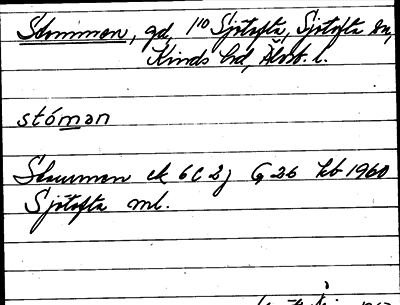 Stommen, gd, 1¹⁰ Sjötofta, Sjötofta sn,
Kinds hd, Älvsb. l.
stómən
Stommen ek 6C 2j G 26 kb 1960
Sjötofta ml.